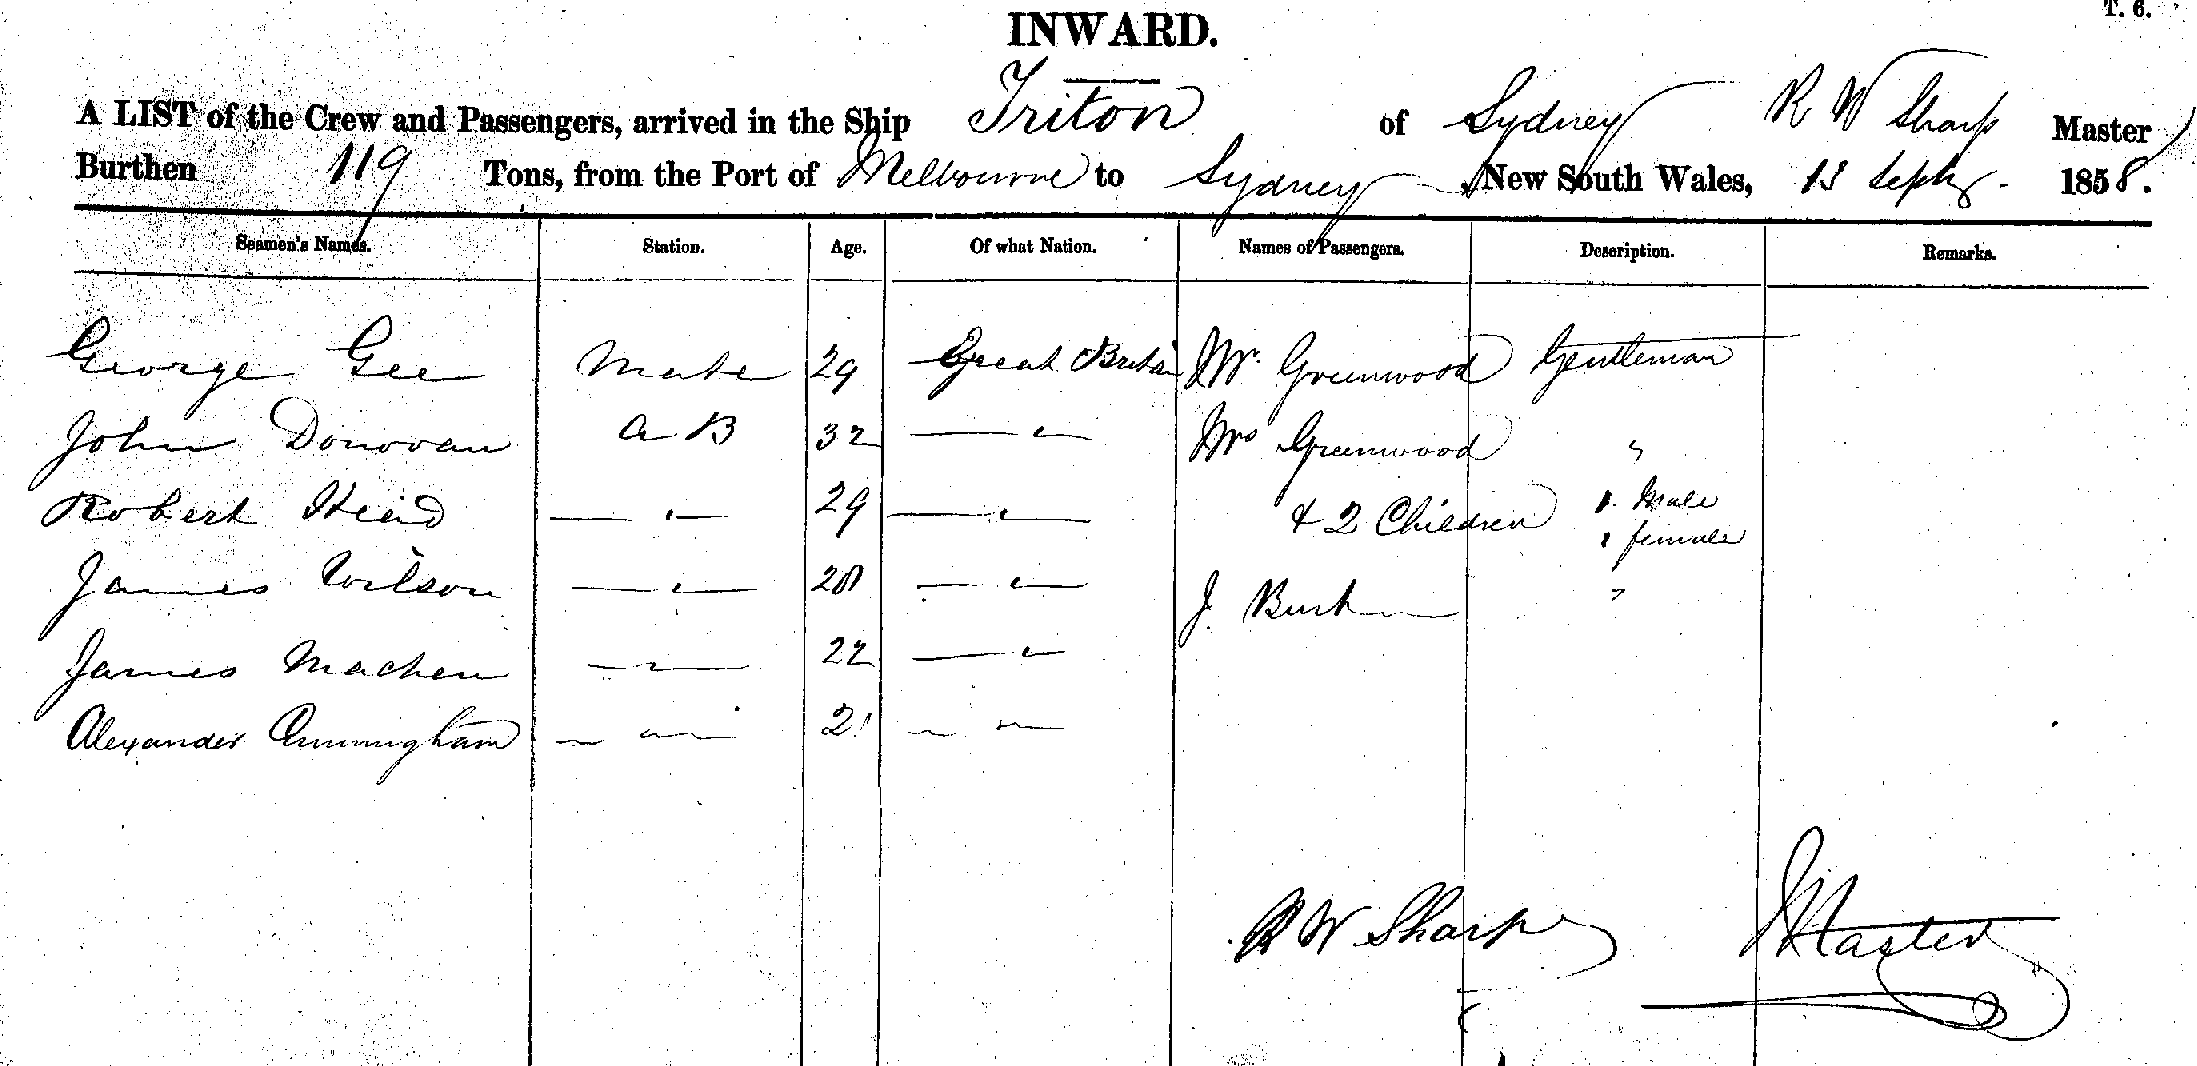 T. 6.
INWARD.
A LIST of the Crew and Passengers, arrived in the Ship Triton of Sydney R W Sharp Master
Burthen 119 Tons, from the Port of Melbourne to Sydney New South Wales, 13 Septr. 1858.
Seamen's Names. Station. Age. Of what Nation. Names of Passengers. Description. Remarks.
George Gee Mate 29 Great Britain Mr. Greenwood Gentleman
John Donovan A B 32 — " — Mrs Greenwood "
Robert — " — 29 — " — & 2 Children 1. Male
1 female
James Wilson — " — 28 — " — J. "
James Machen — " — 22 — " —
Alexander Cunningham — " — 21 — " —
R W Sharp Master